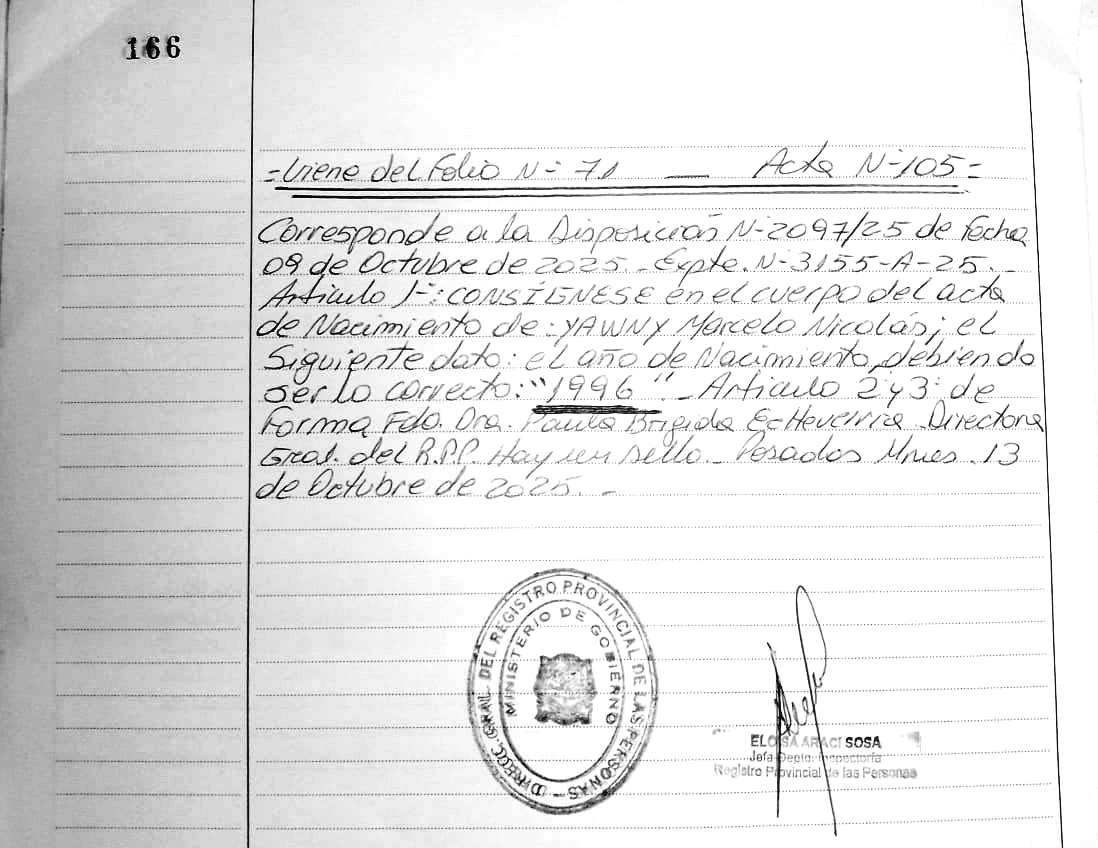 166
=Viene del Folio N- 71 — Acta N-105=
Corresponde a la Disposición N-2097/25 de Fecha
09 de Octubre de 2025.- Expte. N-3155-A-25.-
Artículo 1-: CONSÍGNESE en el cuerpo del acta
de Nacimiento de: YAWNY Marcelo Nicolás; el
Siguiente dato: el año de Nacimiento, debiendo
ser lo correcto: "1996".- Artículo 2 y 3: de
Forma Fdo. Dra. Paula Brigida Echeverria Directora
Gral. del R.P.P. Hay un sello.- Posadas Mnes. 13
de Octubre de 2025.-
DIRECC. GRAL. DEL REGISTRO PROVINCIAL DE LAS PERSONAS -
MINISTERIO DE GOBIERNO
ELOISA ARACI SOSA
Jefa Depto. Inspectoría
Registro Provincial de las Personas